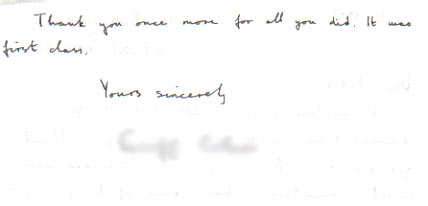 Thank you once more for all you did. It was
first class.
Yours sincerely